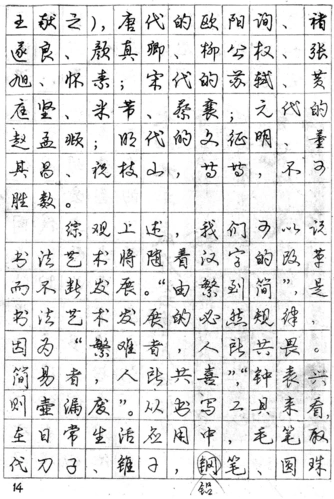 王献之)，唐代的欧阳询、褚
遂良、颜真卿、柳公权、张
旭、怀素；宋代的苏轼、黄
庭坚、米芾、蔡襄；元代的
赵孟頫；明代的文征明、董
其昌、祝枝山，等等，不可
胜数。
综观上述，我们可以说
书法艺术将随着汉字的改革
而不断发展。“由繁到简”，是
书法艺术发展的必然规律，
因为“繁难者，人所共畏。
简易者，人所共喜”，“钟表兴，
则壶漏废”。从书写工具来看，
在日常生活应用中，毛笔取
代刀子、锥子，钢笔、圆珠
14 铅